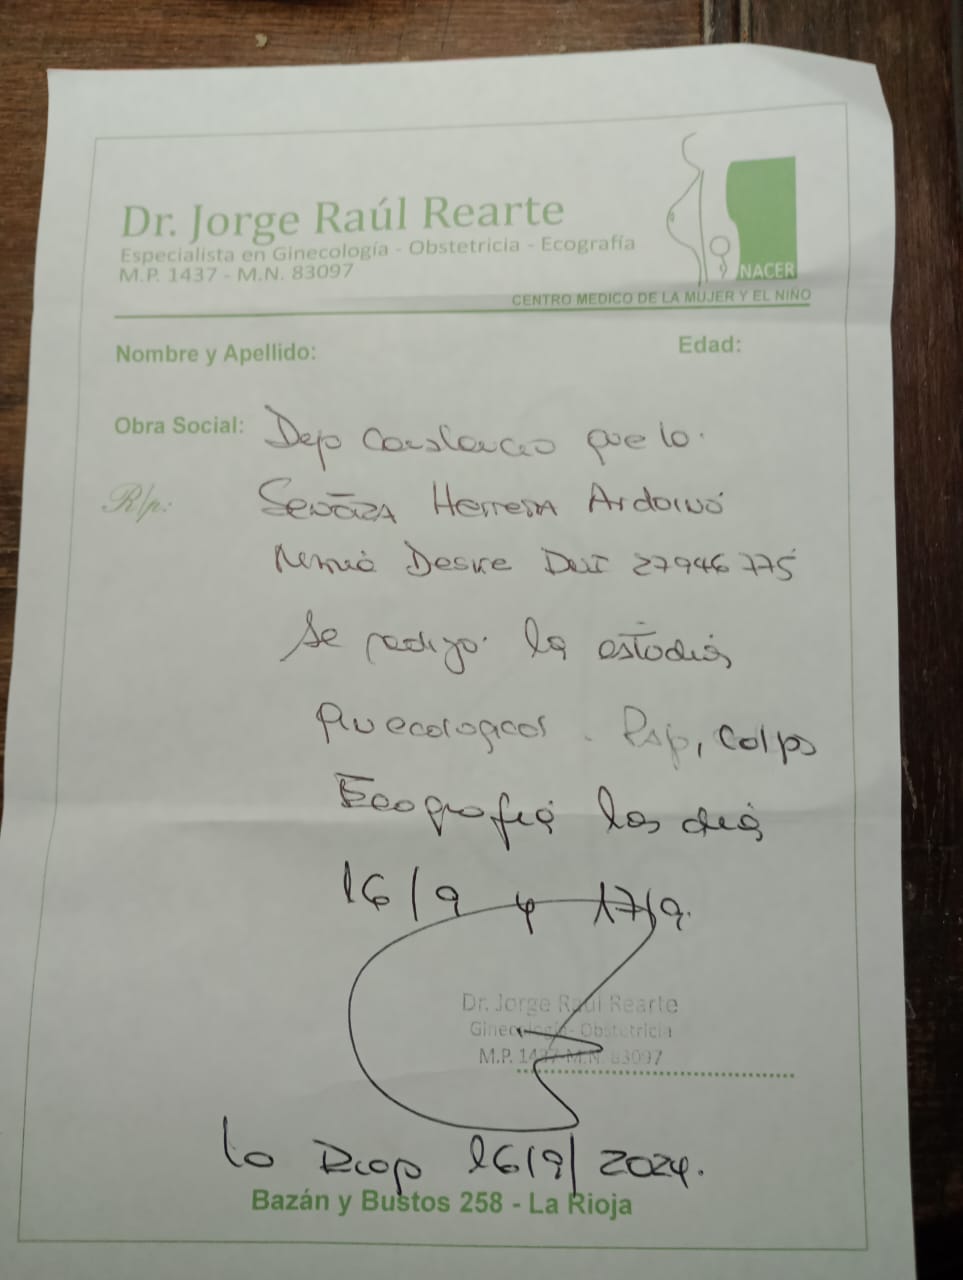 Dr. Jorge Raúl Rearte
Especialista en Ginecología - Obstetricia - Ecografía
M.P. 1437 - M.N. 83097
NACER
CENTRO MEDICO DE LA MUJER Y EL NIÑO
Nombre y Apellido:
Edad:
Obra Social:
Dejo Constancia que la
R/p.:
Señora Herrera Ardoino
Desire DNI 27946775
Se realizo los estudios
Ginecologicos. Pap, Colpo
Ecografia los dias
16/9 y 17/9.
Dr. Jorge Raúl Rearte
Ginecología - Obstetricia
M.P. 1437 M.N. 83097
La Rioja 16/9/2024.
Bazán y Bustos 258 - La Rioja